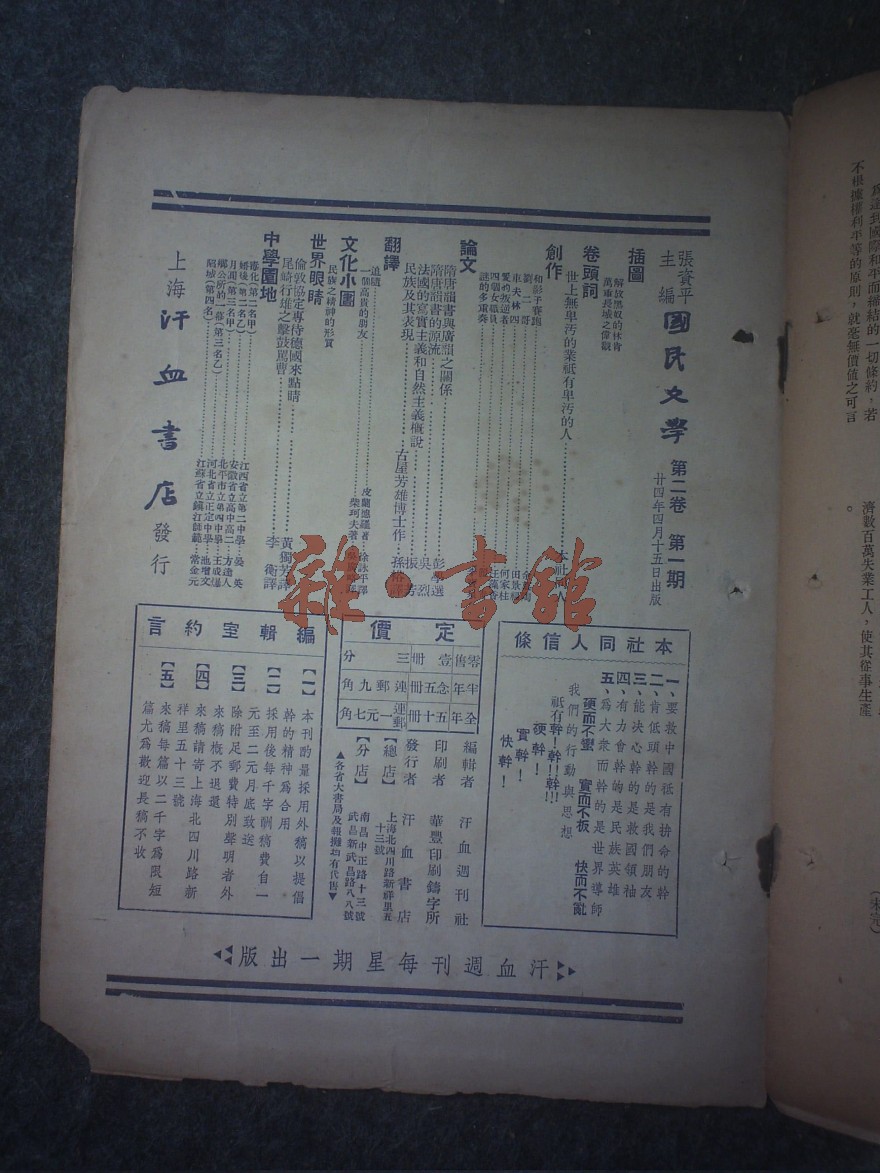 張資平主編 國民文學 第二卷 第一期
廿四年四月十五日出版
插圖
解放黑奴的林肯
萬重長城之偉觀
卷頭詞
世上無卑污的業祇有卑污的人 本社同人
創作
和影子賽跑
劉二哥
車夫林四
愛的叛逆者
四個女職員
謎的多重奏
論文
隋唐韻書與廣韻之關係
隋唐韻書的源流
法國的寫實主義和自然主義概說 吳烈
民族及其表現 古屋芳雄博士作
翻譯
道隨
一個高貴的朋友
文化小圃
民族之精神的形質
世界眼睛
倫敦協定專待德國來點睛 黃獨芳譯
尾崎行雄之擊鼓罵曹 李衛譯
中學園地
江西省立第二中學 姜英
安徽省立高中高二 方遠人
月閙(第三名甲) 北平市立第四中學
河北省立正定中學 池增文
昭城(第四名) 江蘇省立鎮江師範 常金元
上海汗血書店發行
本社同人信條
一、要救中國祇有拚命的幹
二、肯低頭幹的是我們朋友
三、能決心幹的是救國領袖
四、有力會幹的是民族英雄
五、為大衆而幹的是世界導師
硬而不蠻 實而不板 快而不亂
我們的行動與思想
祇有幹!幹!!幹!!!
硬幹!
實幹!
快幹!
定價
零售 壹冊 三分
半年 念五冊 連郵 九角
全年 五十冊 連郵 一元七角
編輯者 汗血週刊社
印刷者 華豐印刷鑄字所
發行者 汗血書店
【總店】 上海北四川路新祥里五十三號
【分店】 南昌中正路十三號
武昌新武昌路八八號
▲各省大書局及報攤均有代售▼
編輯室約言
【一】本刊酌量採用外稿以提倡幹的精神為合用
【二】採用後每千字酬稿費自一元至二元月底致送
【三】除附足郵費特別聲明者外來稿槪不退還
【四】來稿請寄上海北四川路新祥里五十三號
【五】來稿每篇以二千字為限短篇尤為歡迎長稿不收
汗血週刊每星期一出版
為達到國際和平而締結的一切條約,若
不根據權利平等的原則,就毫無價値之可言
濟數百萬失業工人,使其從事生產
。
(未完)
雜·書館